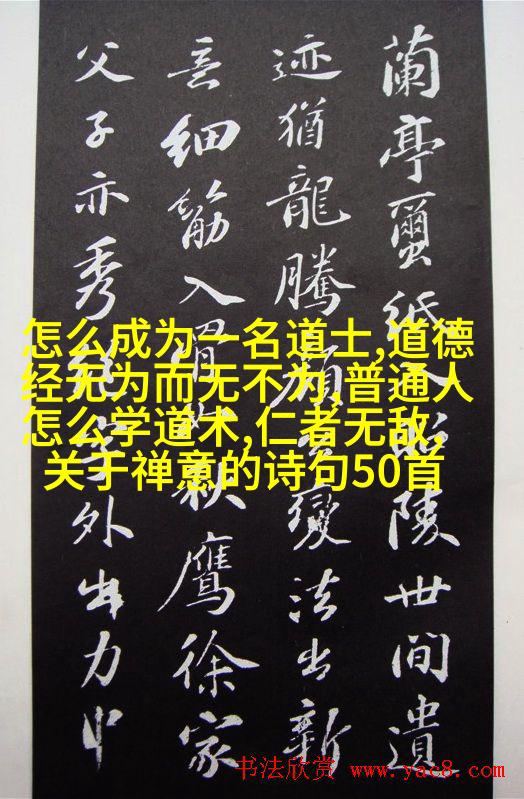 蘭亭繭紙入昭陵世間遺
迹猶龍騰顏公變法出新
意細筋入骨如秋鷹徐家
父子亦秀絕字外出力中
怎么成为一名道士,道德
经无为而无不为,普通人
怎么学道术,仁者无敌,
关于禅意的诗句50首
书法欣赏 www.yac8.com